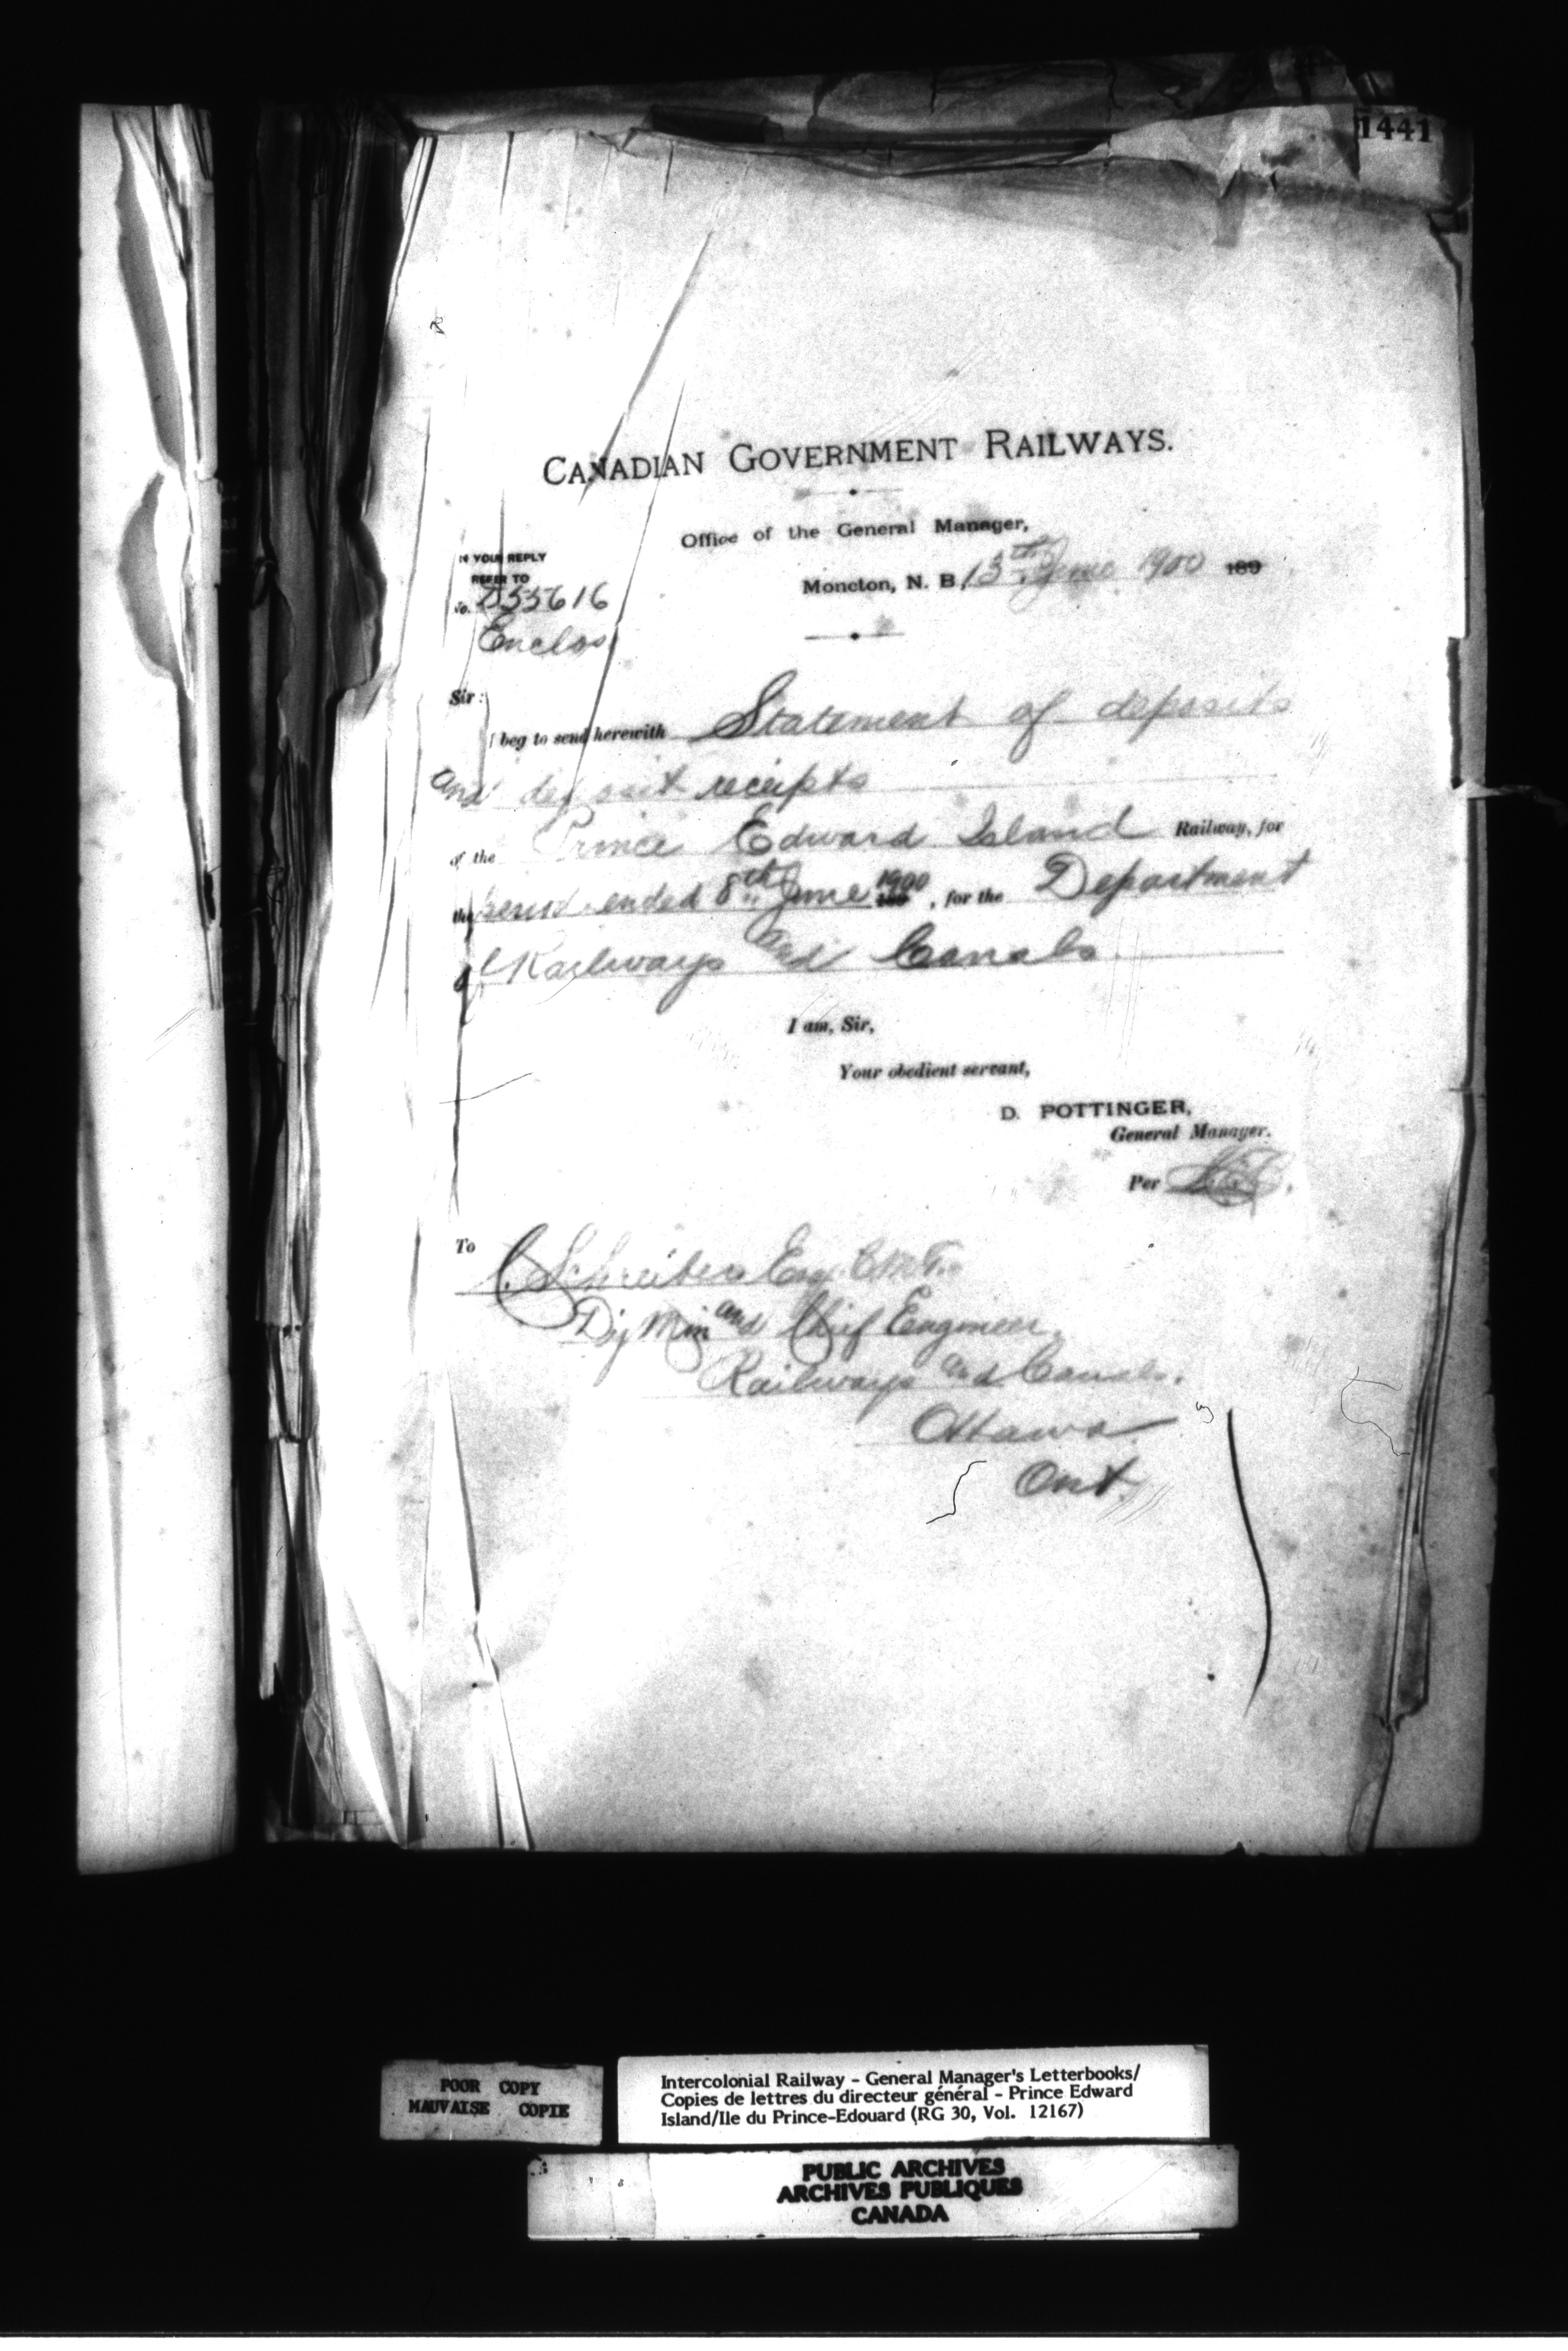 1441
CANADIAN GOVERNMENT RAILWAYS.
Office of the General Manager,
IN YOUR REPLY
REFER TO
No. D55616
Enclos
Moncton, N. B, 13th June 1900 189
Sir:
I beg to send herewith Statement of deposits
and deposit receipts
of the Prince Edward Island Railway, for
the period ended 8th June 1900, for the Department
of Railways and Canals
I am, Sir,
Your obedient servant,
D. POTTINGER,
General Manager.
Per
To
C. Schreiber Esq C.M.G.
Dy Min and Chief Engineer
Railways and Canals.
Ottawa
Ont.
POOR COPY
MAUVAISE COPIE
Intercolonial Railway - General Manager's Letterbooks/
Copies de lettres du directeur général - Prince Edward
Island/Ile du Prince-Edouard (RG 30, Vol. 12167)
PUBLIC ARCHIVES
ARCHIVES PUBLIQUES
CANADA